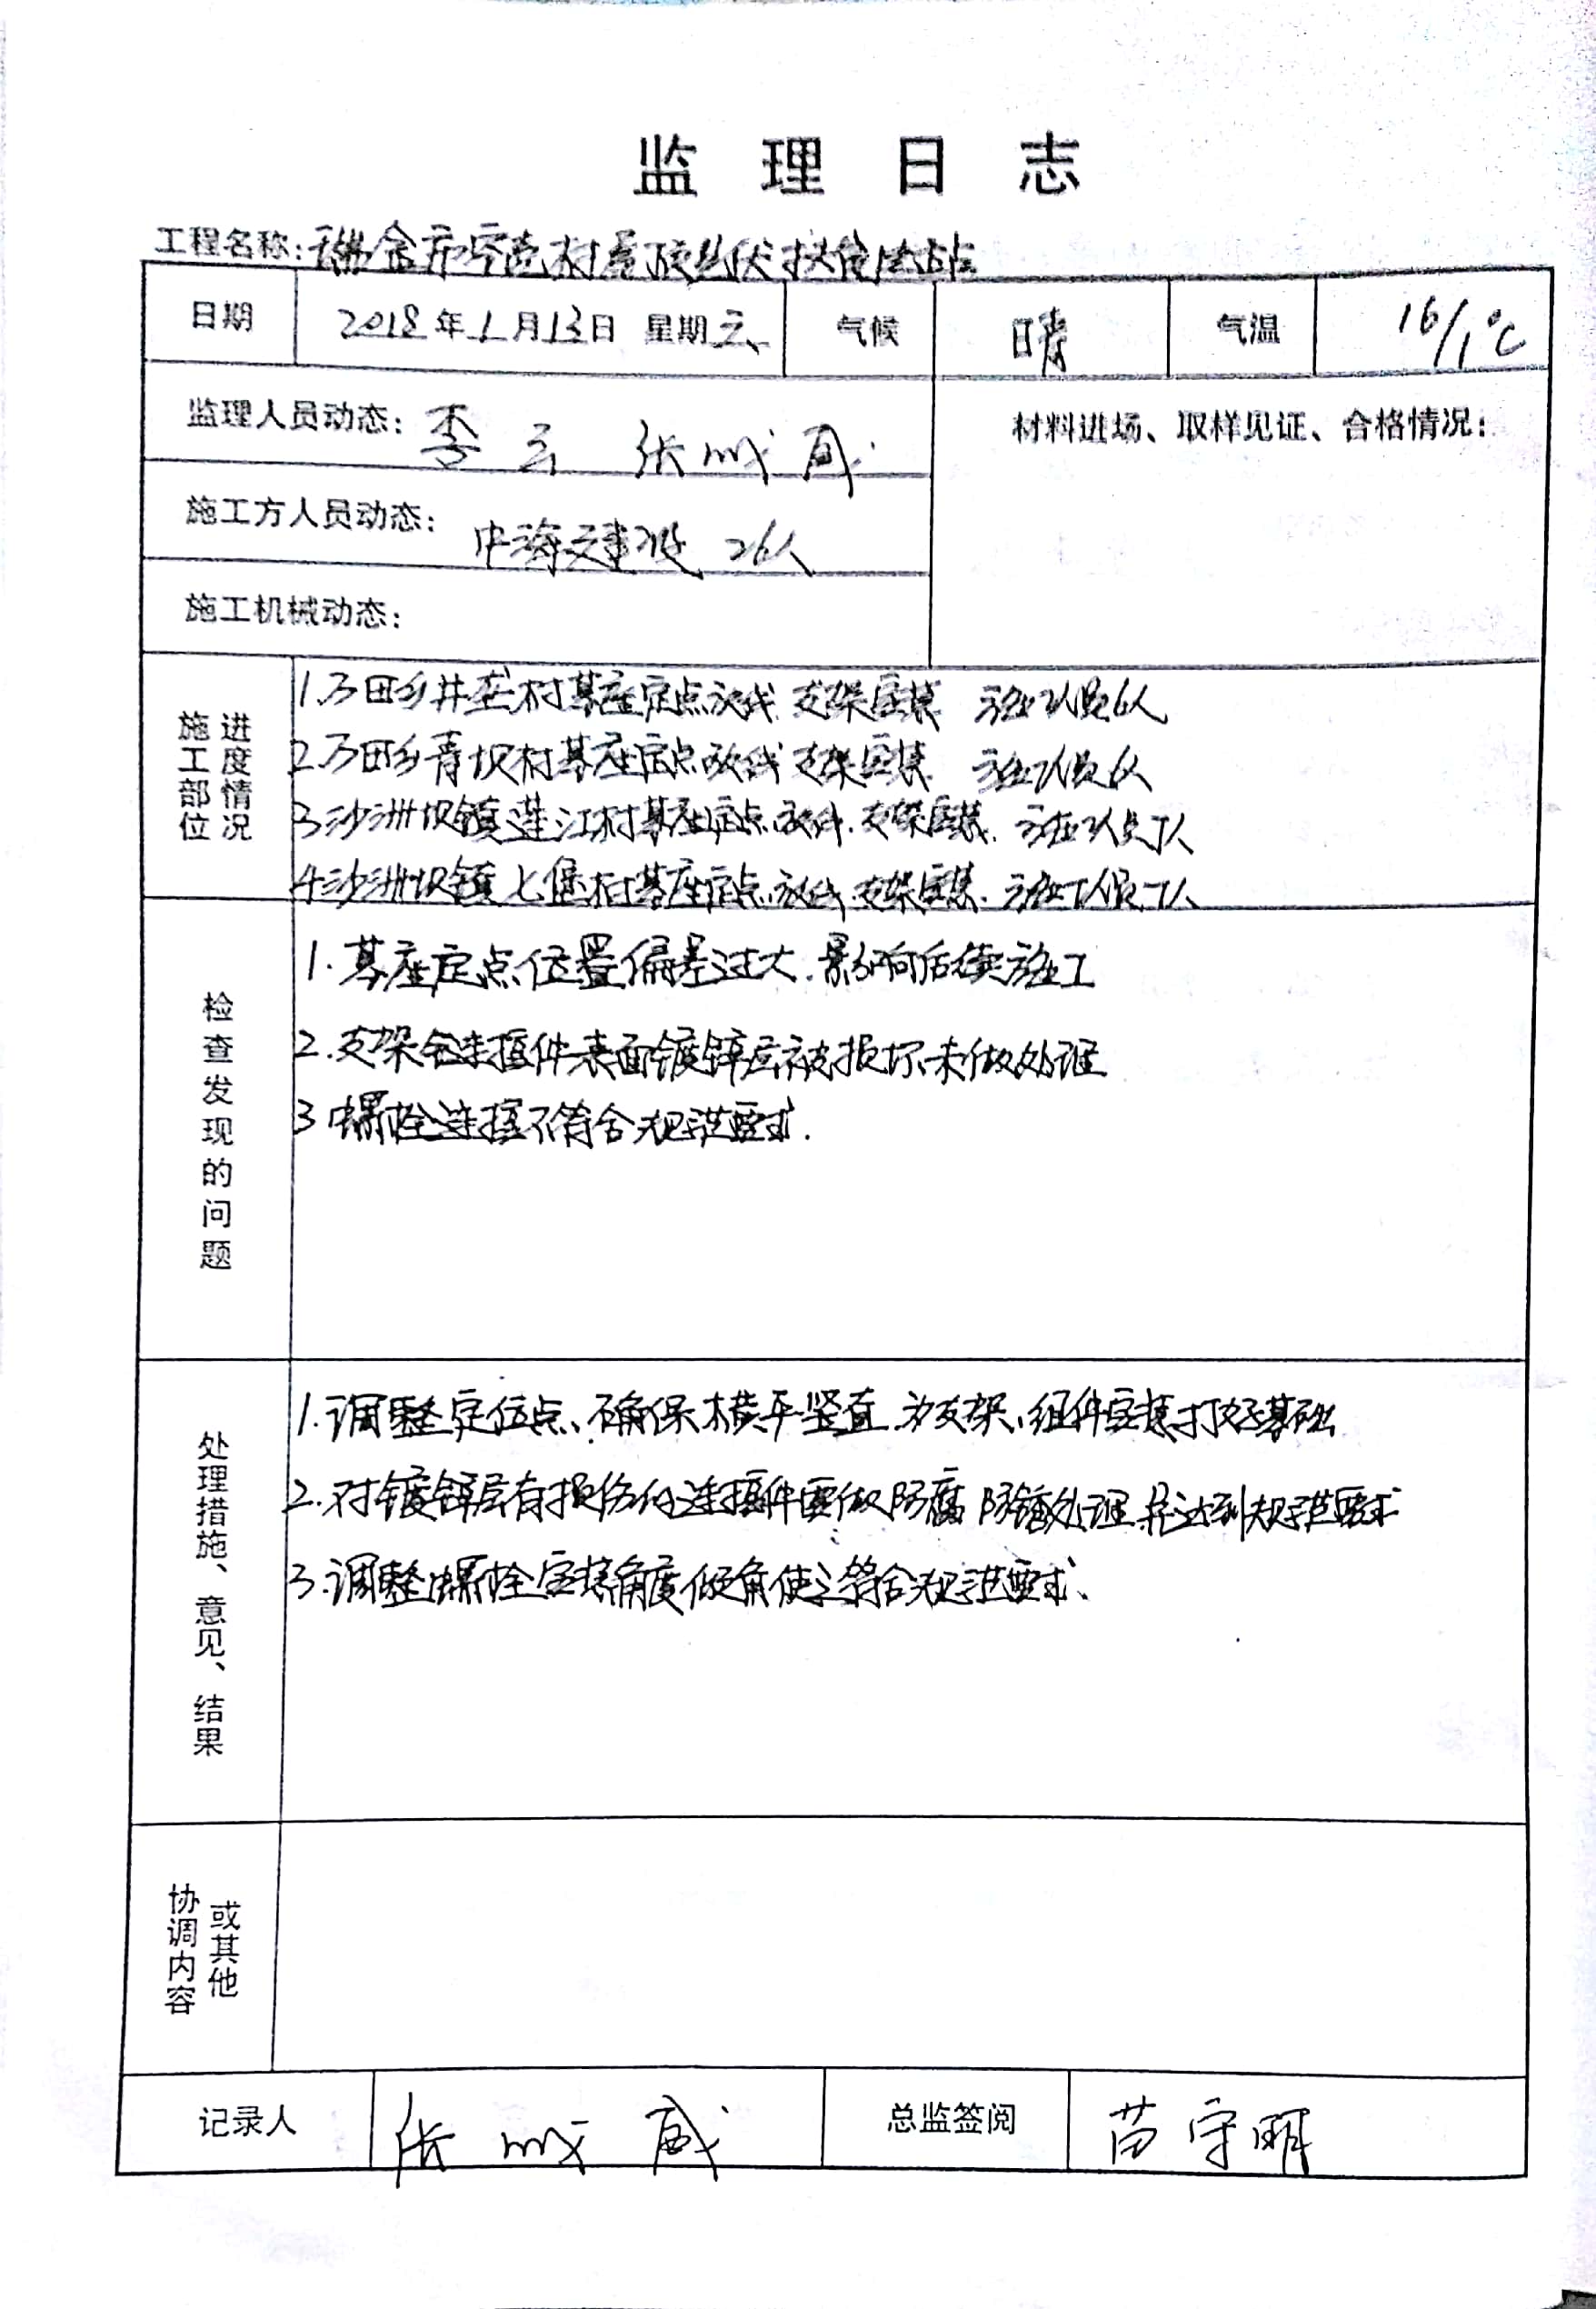 监理日志
工程名称:瑞金市空壳村屋顶光伏扶贫电站
日期 2018年1月13日 星期六 气候 晴 气温 16/1℃
监理人员动态: 李云 张 威 材料进场、取样见证、合格情况:
施工方人员动态: 中海建设 26人
施工机械动态:
施工部位 进度情况
1.万田乡井垄村基座定点放线 支架安装 施工人员6人
2.万田乡青坝村基座定点放线 支架安装 施工人员6人
3.沙洲坝镇莲江村基座定点放线.支架安装. 施工人员7人
4.沙洲坝镇七堡村基座定点放线.支架安装. 施工人员7人
检查发现的问题
1.基座定点位置偏差过大.影响后续施工
2.支架 连接件表面镀锌层被损坏未做处理
3 螺栓连接不符合规范要求.
处理措施、意见、结果
1.调整定位点、确保横平竖直 为支架、组件安装打好基础
2.对镀锌层有损伤的连接件要做防腐 防锈处理 并达到规范要求
3.调整螺栓安装角度倾角使之符合规范要求、
协调内容 或其他
记录人 张 威 总监签阅 苗守明